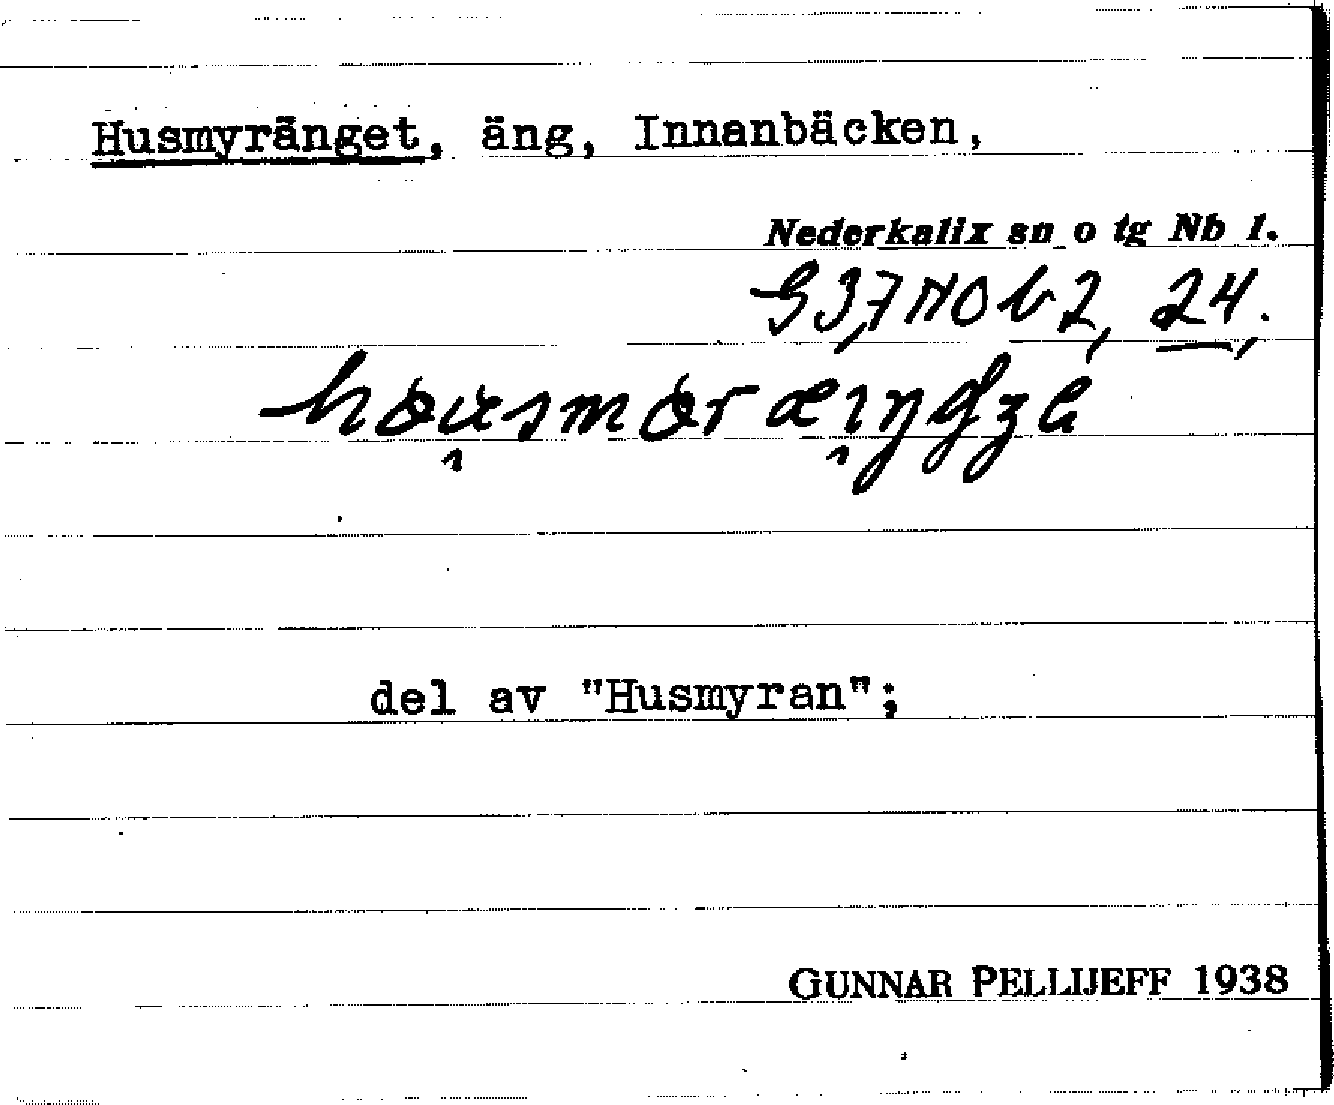 Husmyränget, äng, Innanbäcken,
Nederkalix sn o tg Nb 1.
24.
del av "Husmyran";
GUNNAR PELLIJEFF 1938